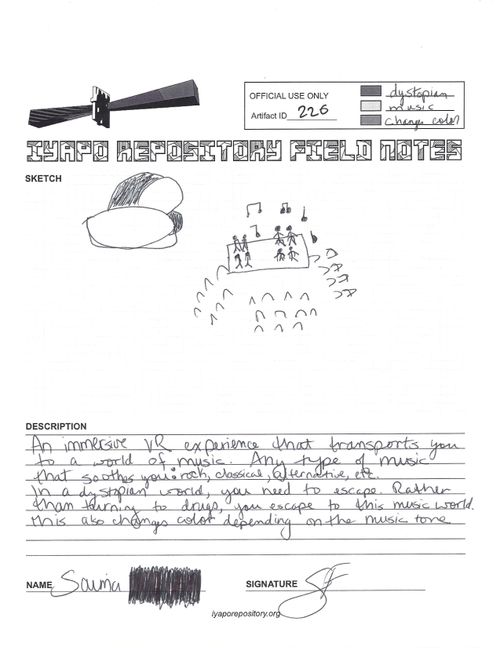 OFFICIAL USE ONLY
Artifact ID 226
dystopian
music
change color
IYAPO REPOSITORY FIELD NOTES
SKETCH
DESCRIPTION
An immersive VR experience that transports you
to a world of music. Any type of music
that soothes you: rock, classical, alternative, etc.
In a dystopian world, you need to escape. Rather
than turning to drugs, you escape to this music world.
This also changes color depending on the music tone
NAME Saima
SIGNATURE
iyaporepository.org